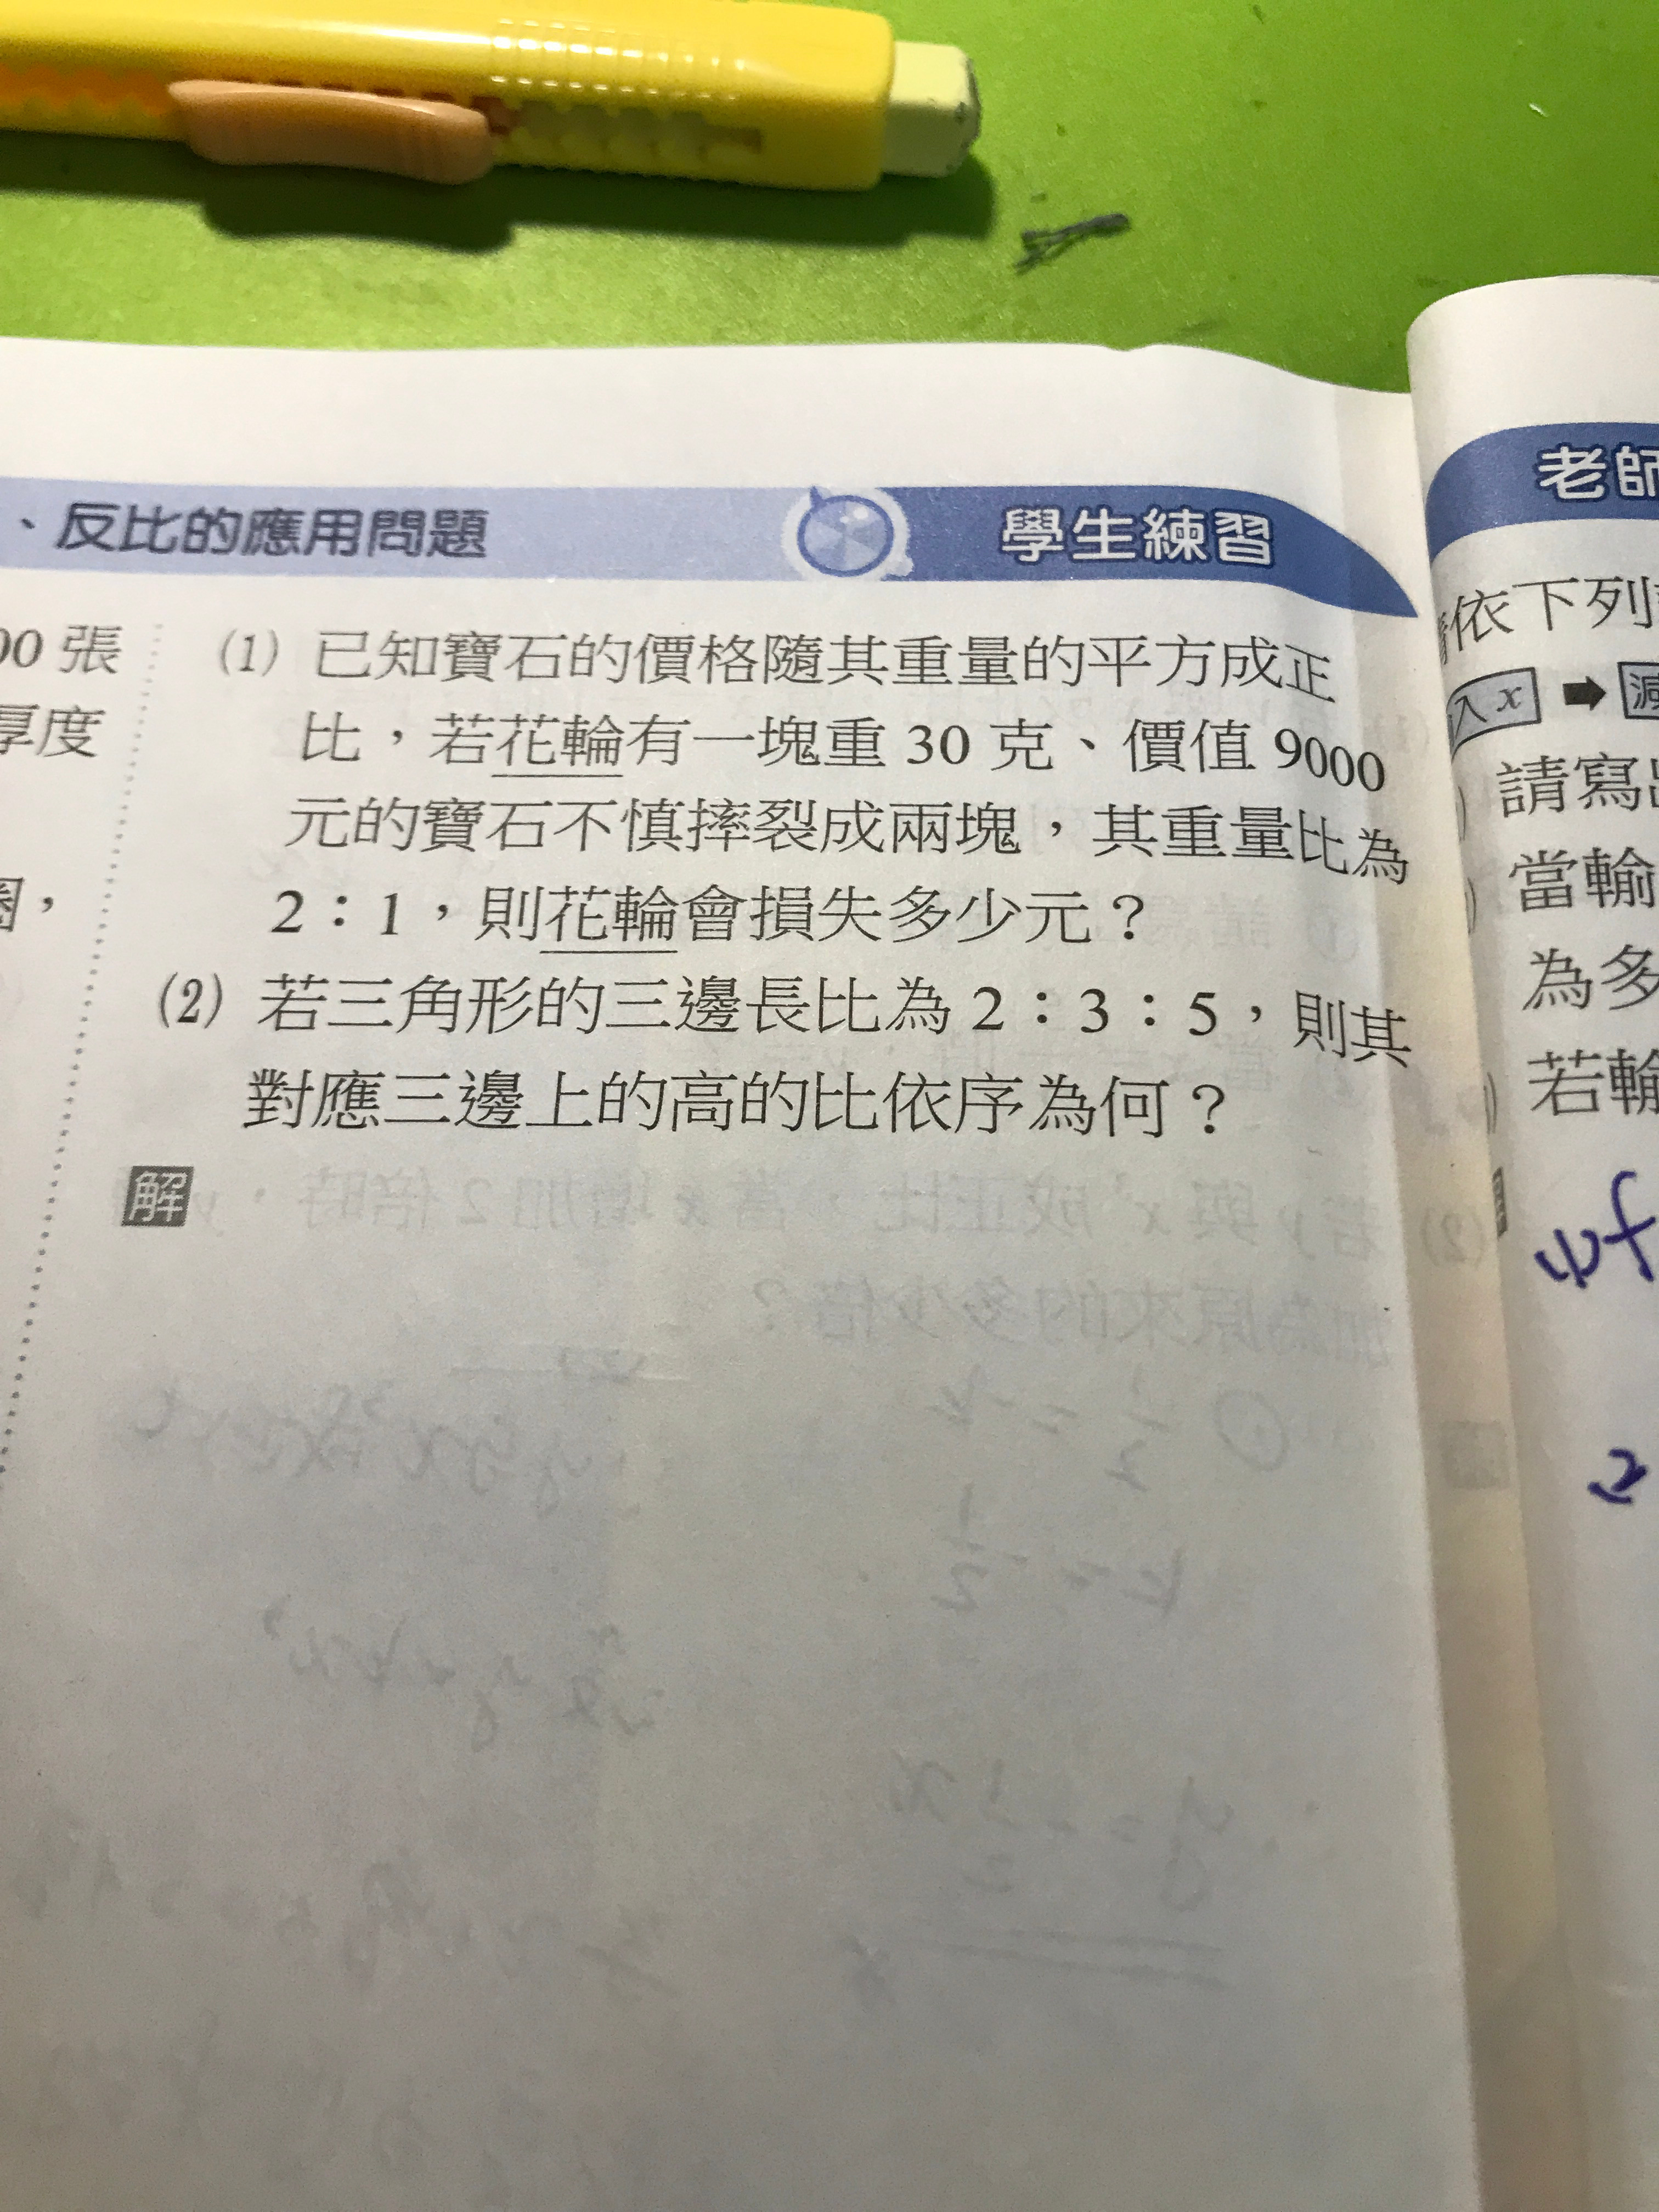 、反比的應用問題
學生練習
00 張
厚度
圈,
(1) 已知寶石的價格隨其重量的平方成正
比,若花輪有一塊重 30 克、價值 9000
元的寶石不慎摔裂成兩塊,其重量比為
2:1,則花輪會損失多少元?
(2) 若三角形的三邊長比為 2:3:5,則其
對應三邊上的高的比依序為何?
解
老師
依下列
入 x ➡ 減
請寫出
當輸
為多
若輸
2